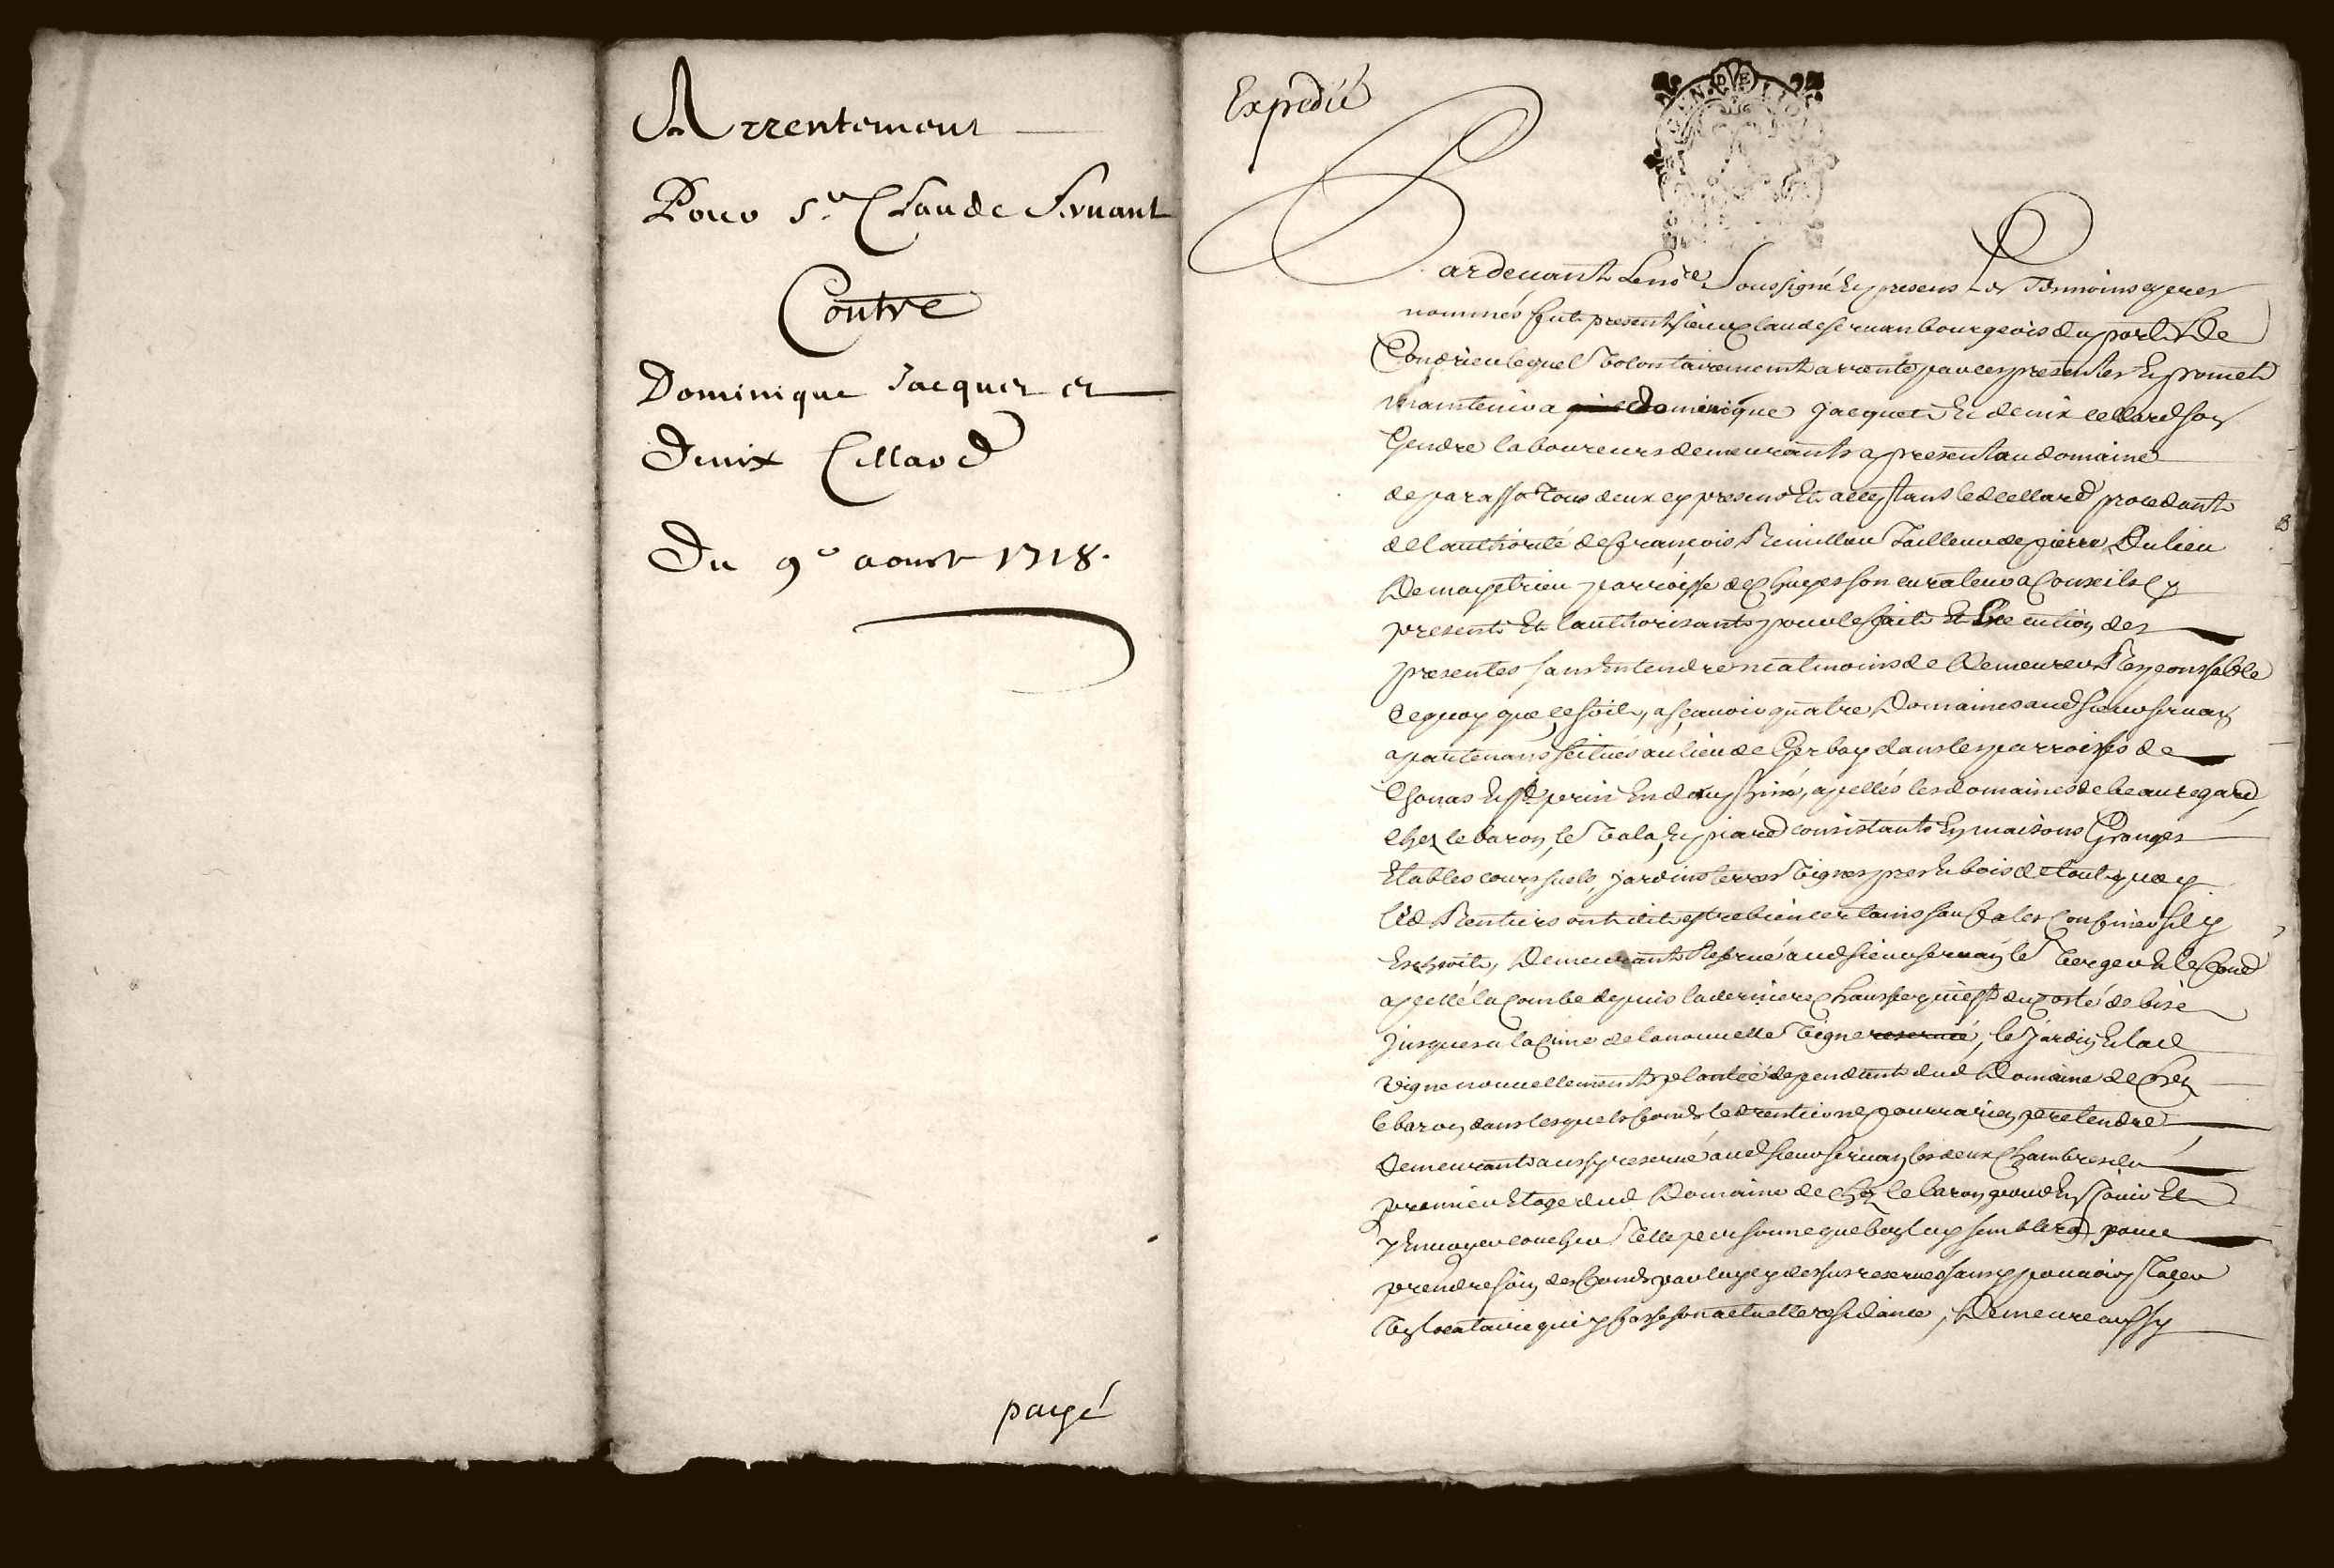 Arrentement
Pour Sr Claude Servant
Contre
Dominique Jacquet et
Denix Cellard
Du 9e aoust 1718.
payé
Expedié
GEN DE LION
Pardevant le nore soussigné & presens les tesmoins apres
nommés fut present sieur claude servan bourgeois du port de
Condrieu lequel volontairement arrente par ces presentes & promet
maintenir a dominique jacquet & denix cellard son
Gendre laboureurs demeurants a present au domaine
de parasso tous deux cy presens et acceptans led cellard procedant
de l authorité de françois Tailleur de pierre du lieu
De parroisse de son curateur a Conseils cy
present et l authorisant pour le fait et execution des
presentes sans entendre neatmoins de demeurer Responssable
de quoy que ce soit, a sçavoir quatre Domaines aud sieur servan
apartenans scitués au lieu de Gerbay dans les parroisses de
Chonas & st prin en dauphiné, apellés les domaines de beauregard,
chez le baron, le & piard consistants en maisons Granges
Etables cours suels, jardins terres vignes pres & bois de tout quoy
led Rentiers ont dit estre bien certains sauf a les Confiner sil y
Eschoit, Demeurant Reservé aud sieur servan le verger & le fond
appellé la Combe depuis la derniere chaussee qui est du Costé de bise
jusques a la Cime de la nouvelle vigne reservée, le jardin & lad
vigne nouvellement plantée dependant dud Domaine de Chez
le baron dans lesquels fonds led rentier ne pourra rien pretendre
Demeurants aussy reservé aud sieur servan les deux Chambres du
premier Etage dud Domaine de chez le baron pour en jouir et
y Envoyer coucher telle personne que bon luy semblera pour
prendre soin des fonds par luy cy dessus reservés sans y pouvoir
un locataire qui y fasse son actuelle residance, Demeure aussy